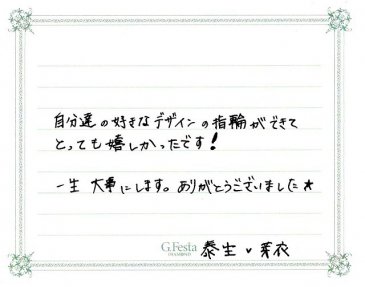 自分達の好きなデザインの指輪ができて
とっても嬉しかったです!
一生大事にします。ありがとうございました★
G.Festa
DIAMOND
泰生 ♥ 芽衣